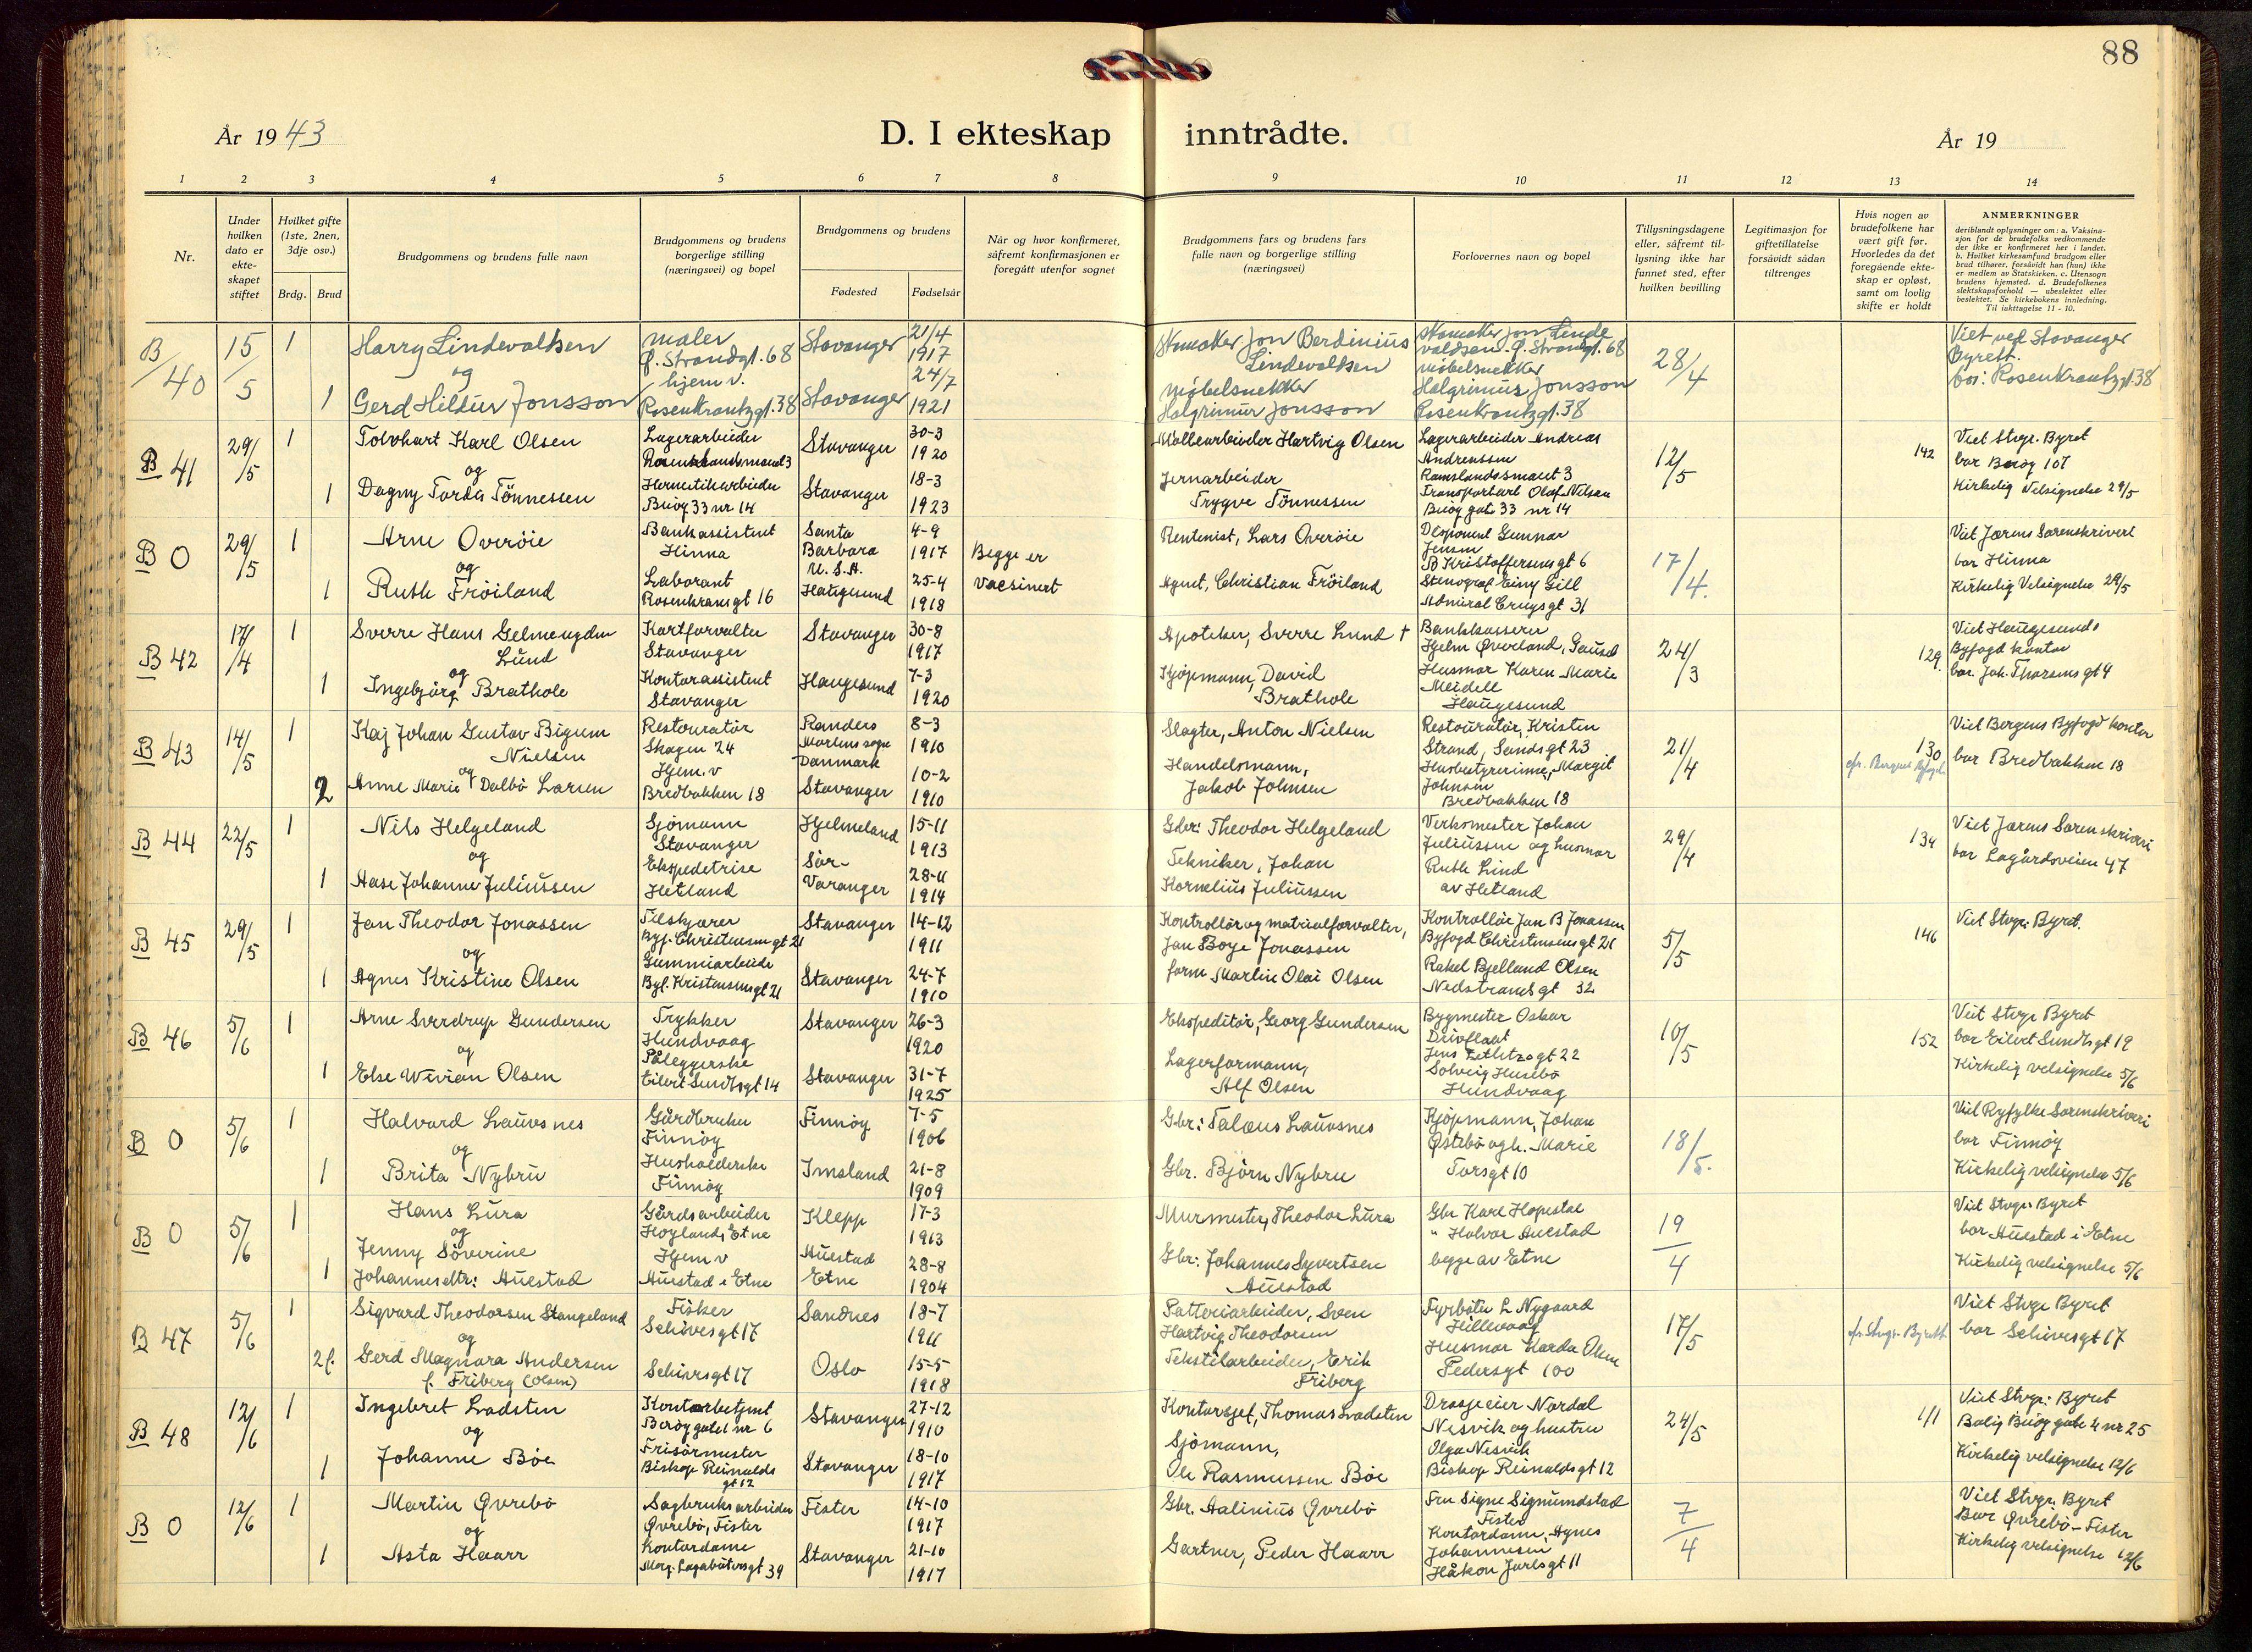 88
År 1943
D. I ekteskap inntrådte.
År 19
1 2 3 4 5 6 7 8 9 10 11 12 13 14
Nr.
Under hvilken dato er ekteskapet stiftet
Hvilket gifte (1ste, 2nen, 3dje osv.)
Brdg. Brud
Brudgommens og brudens fulle navn
Brudgommens og brudens borgerlige stilling (næringsvei) og bopel
Brudgommens og brudens
Fødested
Fødselsår
Når og hvor konfirmeret, såfremt konfirmasjonen er foregått utenfor sognet
Brudgommens fars og brudens fars fulle navn og borgerlige stilling (næringsvei)
Forlovernes navn og bopel
Tillysningsdagene eller, såfremt tillysning ikke har funnet sted, efter hvilken bevilling
Legitimasjon for giftetillatelse forsåvidt sådan tiltrenges
Hvis nogen av brudefolkene har vært gift før. Hvorledes da det foregående ekteskap er opløst, samt om lovlig skifte er holdt
ANMERKNINGER
deriblandt oplysninger om: a. Vaksinasjon for de brudefolks vedkommende der ikke er konfirmeret her i landet. b. Hvilket kirkesamfund brudgom eller brud tilhører, forsåvidt han (hun) ikke er medlem av Statskirken. c. Utensogn brudens hjemsted. d. Brudefolkenes slektskapsforhold — ubeslektet eller beslektet. Se kirkebokens innledning. Til iakttagelse 11 - 10.
B/40 15/5 1
Harry Lindevaldsen
og
1 Gerd Hildur Jonsson
maler
Ø. Strandgt. 68
hjem v.
Rosenkrantzgt. 38
Stavanger 21/4 1917
Stavanger 24/7 1921
Skomaker Jon Berdinius
Lindevaldsen
Møbelsnekker
Halgrimur Jonsson
Skomaker Jon Lindevaldsen. Ø. Strandgt. 68
møbelsnekker
Halgrimur Jonsson
Rosenkrantzgt. 38
28/4
Viet ved Stavanger
Byrett.
bor: Rosenkrantzgt. 38
B 41 29/5 1
Tolvhart Karl Olsen
og
1 Dagny Torda Tönnessen
Lagerarbeider
Hermetikarbeider
Buöy 33 nr 14
Stavanger 30-3 1920
Stavanger 18-3 1923
Møllearbeider Hartvig Olsen
Jernarbeider
Trygve Tönnessen
Lagerarbeider Andreas
Andreassen
Ramslandsmauet 3
Transportarb Olaf Nilsen
Buöy gate 33 nr 14
12/5
142
Viet Stvgr. Byret
bor Buöy 107
Kirkelig Velsignelse 29/5
B 0 29/5 1
Arne Overöie
og
1 Ruth Fröiland
Bankassistent
Hinna
Laborant
Rosenkransgt 16
Santa
Barbara
U. S. A.
4-9 1917
Haugesund 25-4 1918
Begge er
vacsinert
Rentenist, Lars Overöie
Agent, Christian Fröiland
Disponent Gunnar
Jensen
B Kristoffersensgt 6
Stenograf Einy Gill
Admiral Cruysgt 31
17/4.
Viet Jærens Sorenskriveri
bor Hinna
Kirkelig Velsignelse 29/5
B 42 17/4 1
Sverre Hans Gelmeugden
Lund
og
1 Ingebjörg Brathole
Kartforvalter
Stavanger
Kontorassistent
Stavanger
Stavanger 30-8 1917
Haugesund 7-3 1920
Apoteker, Sverre Lund †
Kjöpmann, David
Brathole
Bankkasserer
Hjelm Øverland, Gausel
Husmor Karen Marie
Meidell
Haugesund
24/3
129.
Viet Haugesunds
Byfogd kontor
bor. Joh. Thorsens gt 4
B 43 14/5 1
Kaj Johan Gustav Bigum
Nielsen
og
2 Anne Marie Dalbö Larsen
Restauratør
Skagen 24
Hjem. v
Bredbakken 18
Randers
Mortens sogn
Danmark
8-3 1910
Stavanger 10-2 1910
Slagter, Anton Nielsen
Handelsmann,
Jakob Johnsen
Restauratør, Kristen
Strand, Sundsgt 23
Husbestyrerinne, Margit
Johnsen
Bredbakken 18
21/4
130
Viet Bergens Byfogd kontor
bor Bredbakken 18
B 44 22/5 1
Nils Helgeland
og
1 Aase Johanne Juliussen
Sjömann
Stavanger
Ekspedetrise
Hetland
Hjelmeland 15-11 1913
Sör-
Varanger 28-11 1914
Gbr: Theodor Helgeland
Tekniker, Johan
Kornelius Juliussen
Verksmester Johan
Juliussen og husmor
Ruth Lind
av Hetland
29/4
134
Viet Jærens Sorenskriveri
bor Lagårdsveien 47
B 45 29/5 1
Jan Theodor Jonassen
og
1 Agnes Kristine Olsen
Tilskjærer
Byf. Christensensgt 21
Gummiarbeide
Byf. Kristensensgt 21
Stavanger 14-12 1911
Stavanger 24-7 1910
Kontrollör og matrialforvalter,
Jan Boye Jonassen
form Martin Olai Olsen
Kontrollör Jan B Jonassen
Byfogd Christensensgt 21
Rakel Bjelland Olsen
Nedstrandsgt 32
5/5
146
Viet Stvgr. Byret.
B 46 5/6 1
Arne Sverdrup Gundersen
og
1 Else Wivian Olsen
Trykker
Hundvaag
Påleggerske
Eilert Sundtsgt 14
Stavanger 26-3 1920
Stavanger 31-7 1925
Ekspeditör, Georg Gundersen
Lagerformann,
Alf Olsen
Bygmester Oskar
Drivflaat
Jens Zetlitzsgt 22
Solveig Husebö
Hundvaag
10/5
152
Viet Stvgr Byret
bor Eilert Sundtsgt 19
Kirkelig velsignelse 5/6
B 0 5/6 1
Halvard Lauvsnes
og
1 Brita Nybru
Gårdbruker
Finnöy
Husholderske
Finnöy
Finnöy 7-5 1906
Imsland 21-8 1909
Gbr: Talous Lauvsnes
Gbr. Björn Nybru
Kjöpmann, Johan
Østebö og h. Marie
Torsgt 10
18/5.
Viet Ryfylke Sorenskriveri
bor Finnöy
Kirkelig velsignelse 5/6
B 0 5/6 1
Hans Lura
og
Jenny Söverine
1 Johannesdtr: Auestad
Gårdsarbeider
Höyland, Etne
Hjem v
Auestad i Etne
Klepp 17-3 1913
Auestad
Etne 28-8 1904
Murmester, Theodor Lura
Gbr: Johannes Syvertsen
Auestad
Gbr Karl Hopestal
" Halvor Auestad
begge av Etne
19/4
Viet Stvgr Byret
bor Auestad i Etne
Kirkelig velsignelse 5/6
B 47 5/6 1
Sigvard Theodorsen Stangeland
og
2 f. Gerd Magnora Andersen
f. Friberg (Olsen)
Fisker
Schivesgt 17
Schivesgt 17
Sandnes 18-7 1911
Oslo 15-5 1918
Patteriarbeider, Sven
Hartvig Theodorsen
Tekstilarbeider, Erik
Friberg
Fyrböter L Nygaard
Hillevaag
Husmor Karda Olsen
Pedersgt 100
17/5
fr. Stvgr. Byrett
Viet Stvgr Byret
bor Schivesgt 17
B 48 12/6 1
Ingebret Ladsten
og
1 Johanne Böe
Kontorbetjent
Frisörmester
Biskop Reinalds
gt 12
Stavanger 27-12 1910
Stavanger 18-10 1917
Kontorsjef, Thomas Ladsten
Sjömann,
Ole Rasmussen Böe
Drosjeeier Nordal
Nesvik og hustru
Olga Nesvik
Biskop Reinaldsgt 12
24/5
Viet Stvgr: Byret
Bolig Buöy gate 4 nr 25
Kirkelig velsignelse 12/6
B 0 12/6 1
Martin Øvrebö
og
1 Asta Haarr
Sagbruksarbeider
Øvrebö, Fister
Kontordame
Mag. Lagabøtersgt 39
Fister 14-10 1917
Stavanger 21-10 1917
Gbr. Halinius Øvrebö
Gartner, Peder Haarr
Fru Signe Sigmundstad
Fister
Kontordame, Agnes
Johannesen
Håkon Jarlsgt 11
7/4
Viet Stvgr. Byret
Bor Øvrebö - Fister
Kirkelig velsignelse 12/6